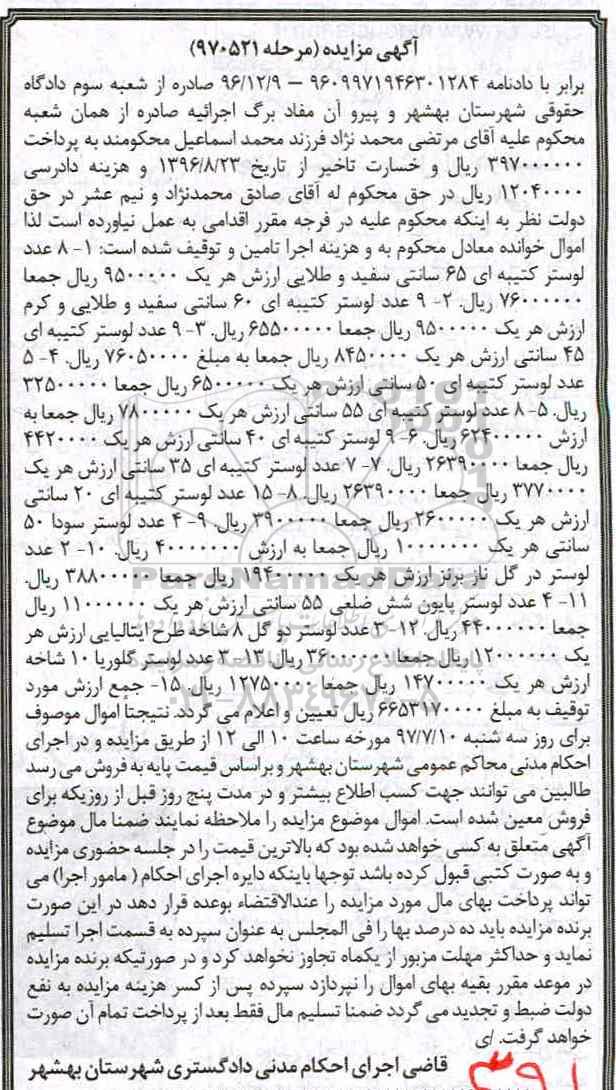 آگهی مزایده (مرحله ۹۷۰۵۲۱)
برابر با دادنامه ۹۶۰۹۹۷۱۹۴۶۳۰۱۲۸۴ – ۹۶/۱۲/۹ صادره از شعبه سوم دادگاه
حقوقی شهرستان بهشهر و پیرو آن مفاد برگ اجرائیه صادره از همان شعبه
محکوم علیه آقای مرتضی محمد نژاد فرزند محمد اسماعیل محکومند به پرداخت
۳۹۷۰۰۰۰۰۰ ریال و خسارت تاخیر از تاریخ ۱۳۹۶/۸/۲۳ و هزینه دادرسی
۱۲۰۴۰۰۰۰ ریال در حق محکوم له آقای صادق محمدنژاد و نیم عشر در حق
دولت نظر به اینکه محکوم علیه در فرجه مقرر اقدامی به عمل نیاورده است لذا
اموال خوانده معادل محکوم به و هزینه اجرا تامین و توقیف شده است: ۱- ۸ عدد
لوستر کتیبه ای ۶۵ سانتی سفید و طلایی ارزش هر یک ۹۵۰۰۰۰۰ ریال جمعا
۷۶۰۰۰۰۰۰ ریال. ۲- ۹ عدد لوستر کتیبه ای ۶۰ سانتی سفید و طلایی و کرم
ارزش هر یک ۹۵۰۰۰۰۰ ریال جمعا ۶۵۵۰۰۰۰۰ ریال. ۳- ۹ عدد لوستر کتیبه ای
۴۵ سانتی ارزش هر یک ۸۴۵۰۰۰۰ ریال جمعا به مبلغ ۷۶۰۵۰۰۰۰ ریال. ۴- ۵
عدد لوستر کتیبه ای ۵۰ سانتی ارزش هر یک ۶۵۰۰۰۰۰ ریال جمعا ۳۲۵۰۰۰۰۰
ریال. ۵- ۸ عدد لوستر کتیبه ای ۵۵ سانتی ارزش هر یک ۷۸۰۰۰۰۰ ریال جمعا به
ارزش ۶۲۴۰۰۰۰۰ ریال. ۶- ۹ لوستر کتیبه ای ۴۰ سانتی ارزش هر یک ۴۴۲۰۰۰۰
ریال جمعا ۲۶۳۹۰۰۰۰ ریال. ۷- ۷ عدد لوستر کتیبه ای ۳۵ سانتی ارزش هر یک
۳۷۷۰۰۰۰ ریال جمعا ۲۶۳۹۰۰۰۰ ریال. ۸- ۱۵ عدد لوستر کتیبه ای ۲۰ سانتی
ارزش هر یک ۲۶۰۰۰۰۰ ریال جمعا ۳۹۰۰۰۰۰ ریال. ۹- ۴ عدد لوستر سودا ۵۰
سانتی هر یک ۱۰۰۰۰۰۰۰ ریال جمعا به ارزش ۴۰۰۰۰۰۰۰ ریال. ۱۰- ۲ عدد
لوستر در گل ناز برنز ارزش هر یک ۱۹۴۰۰۰۰۰ ریال جمعا ۳۸۸۰۰۰۰۰ ریال.
۱۱- ۴ عدد لوستر پایون شش ضلعی ۵۵ سانتی ارزش هر یک ۱۱۰۰۰۰۰۰ ریال
جمعا ۴۴۰۰۰۰۰۰ ریال. ۱۲- ۳ عدد لوستر دو گل ۸ شاخه طرح ایتالیایی ارزش هر
یک ۱۲۰۰۰۰۰۰ ریال جمعا ۳۶۰۰۰۰۰۰ ریال. ۱۳- ۳ عدد لوستر گلوریا ۱۰ شاخه
ارزش هر یک ۱۴۷۰۰۰۰۰ ریال جمعا ۱۲۷۵۰۰۰۰ ریال. ۱۵- جمع ارزش مورد
توقیف به مبلغ ۶۶۵۳۱۷۰۰۰۰ ریال تعیین و اعلام می گردد. نتیجتا اموال موصوف
برای روز سه شنبه ۹۷/۷/۱۰ مورخه ساعت ۱۰ الی ۱۲ از طریق مزایده و در اجرای
احکام مدنی محاکم عمومی شهرستان بهشهر و براساس قیمت پایه به فروش می رسد
طالبین می توانند جهت کسب اطلاع بیشتر و در مدت پنج روز قبل از روزیکه برای
فروش معین شده است. اموال موضوع مزایده را ملاحظه نمایند ضمنا مال موضوع
آگهی متعلق به کسی خواهد شده بود که بالاترین قیمت را در جلسه حضوری مزایده
و به صورت کتبی قبول کرده باشد توجها باینکه دایره اجرای احکام ( مامور اجرا) می
تواند پرداخت بهای مال مورد مزایده را عندالاقتضاء بوعده قرار دهد در این صورت
برنده مزایده باید ده درصد بها را فی المجلس به عنوان سپرده به قسمت اجرا تسلیم
نماید و حداکثر مهلت مزبور از یکماه تجاوز نخواهد کرد و در صورتیکه برنده مزایده
در موعد مقرر بقیه بهای اموال را نپردازد سپرده پس از کسر هزینه مزایده به نفع
دولت ضبط و تجدید می گردد ضمنا تسلیم مال فقط بعد از پرداخت تمام آن صورت
خواهد گرفت. /ی
قاضی اجرای احکام مدنی دادگستری شهرستان بهشهر
۳۹۱